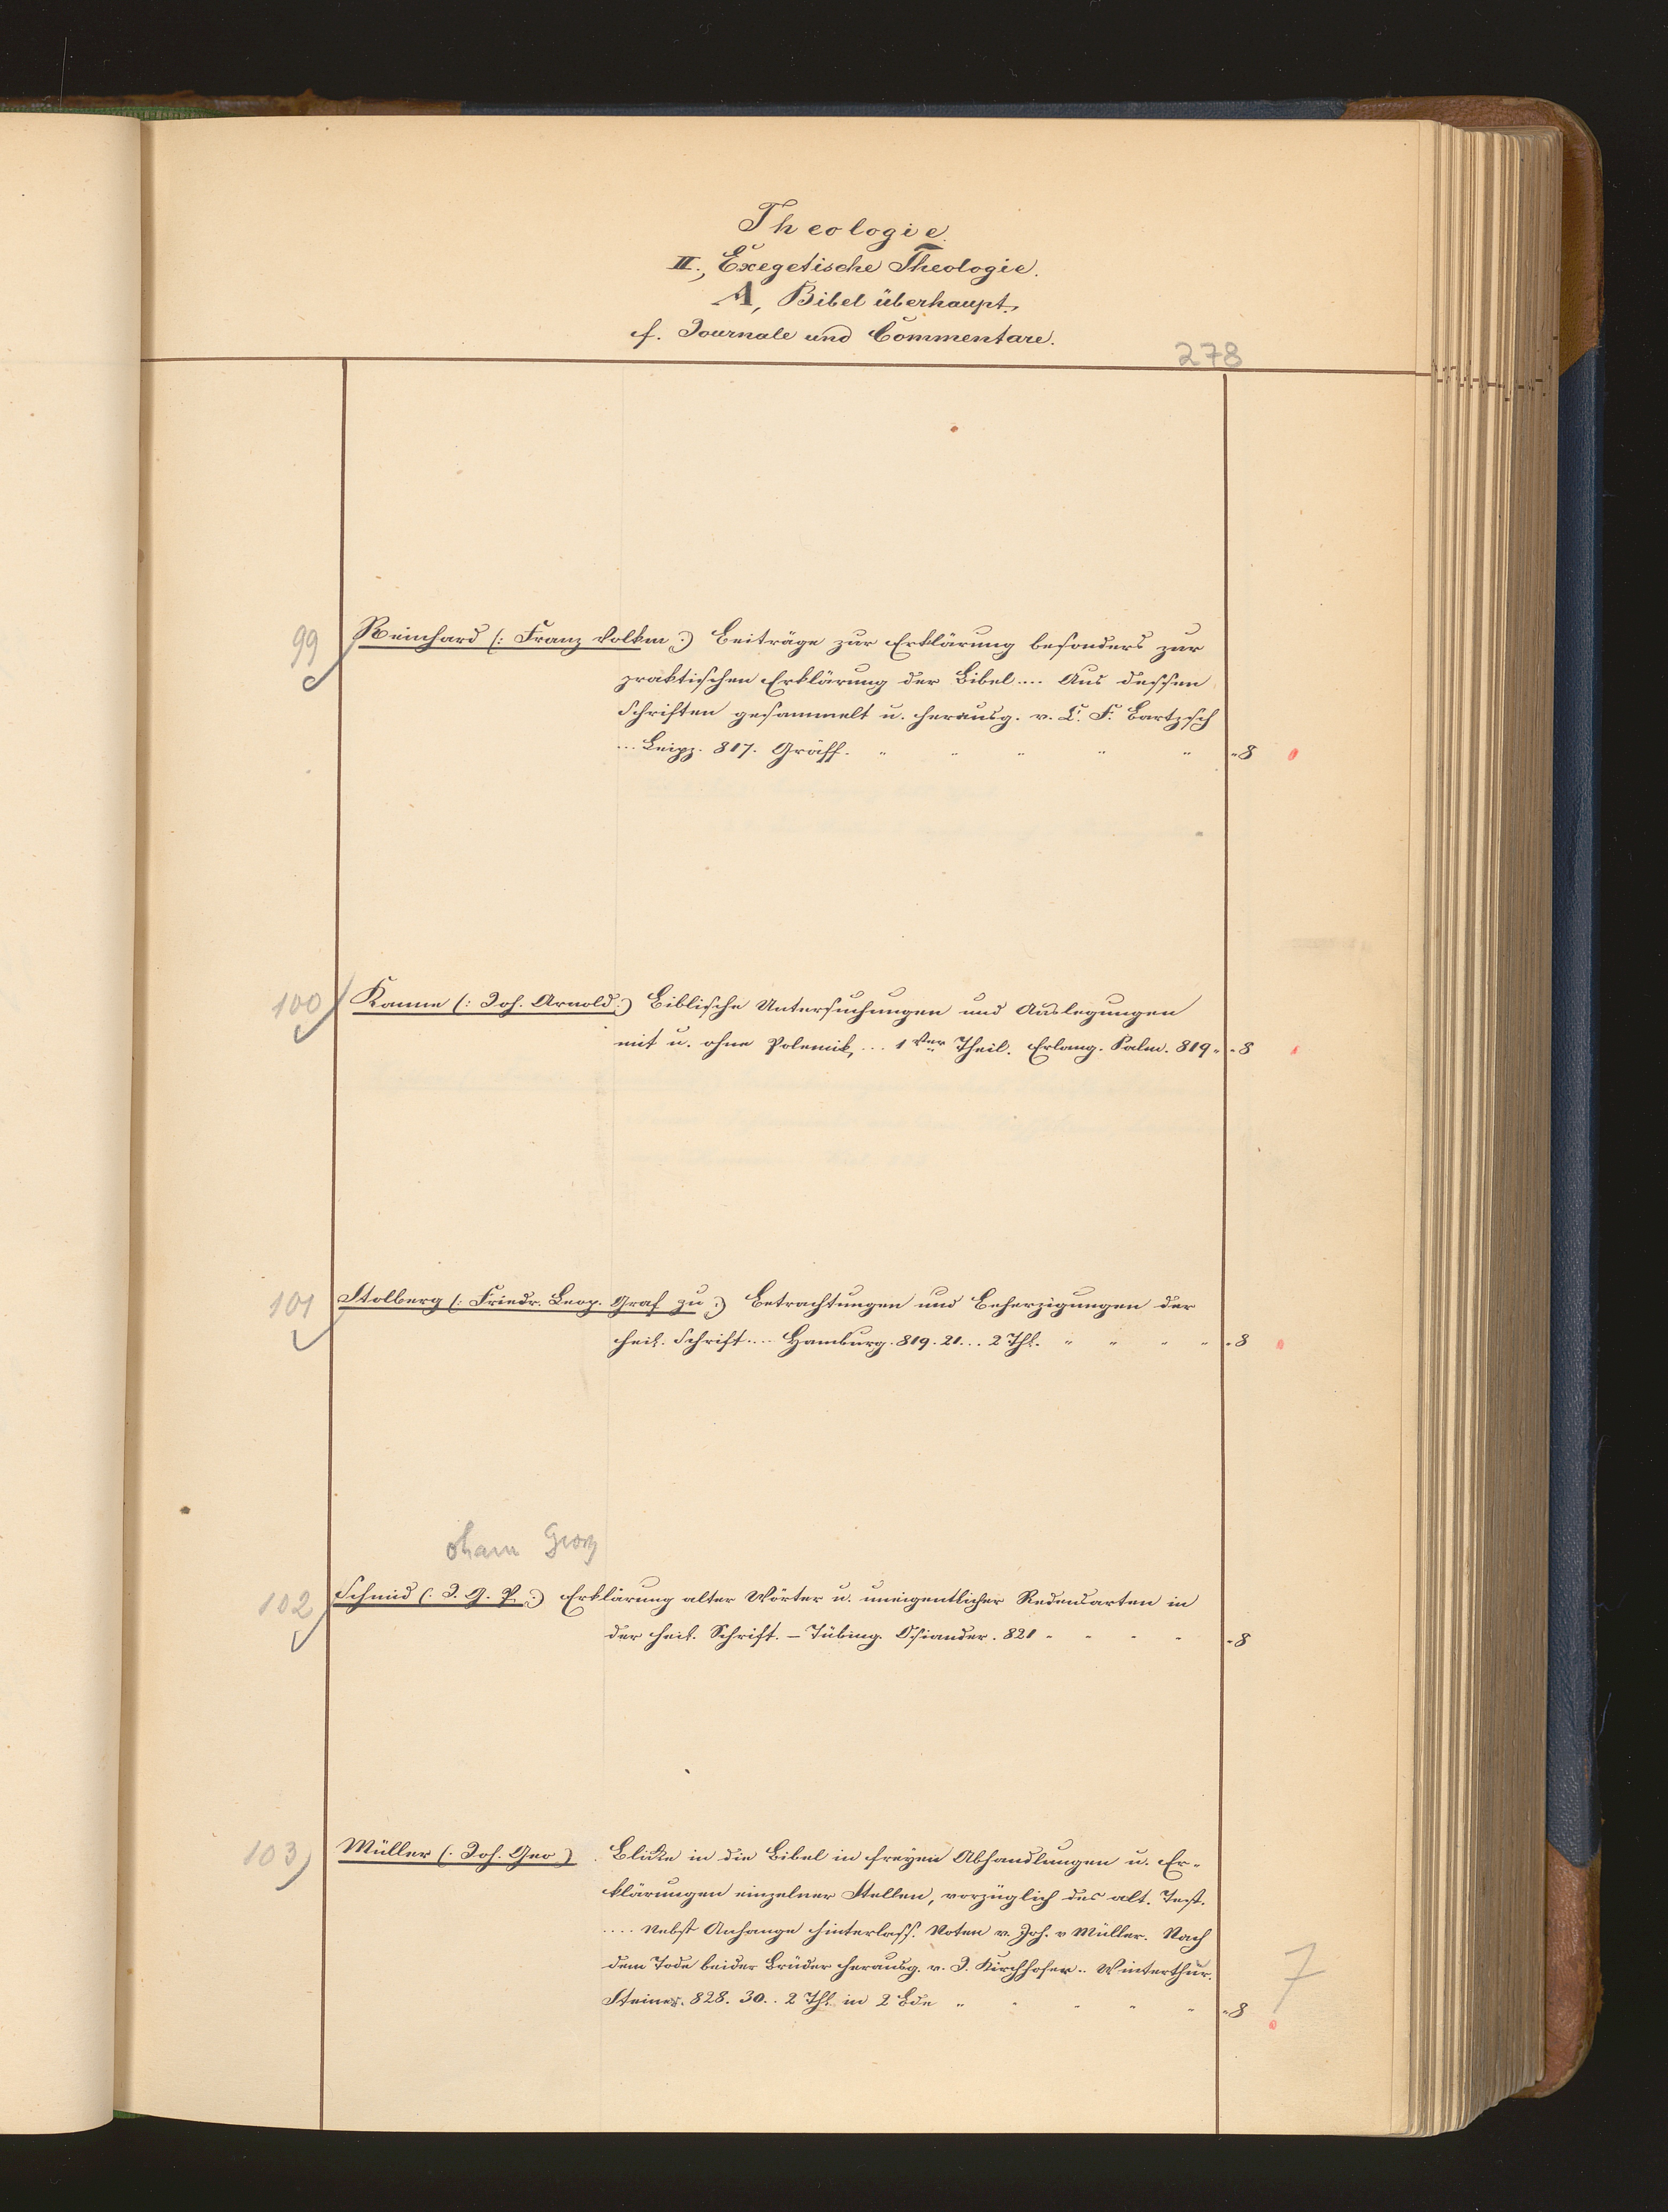 Theologie.
II., Exegetische Theologie.
A, Bibel überhaupt.
f. Journale und Commentare.
278
99 Reinhard (: Franz Volkm :) Beiträge zur Erklärung besonders zur
praktischen Erklärung der Bibel .... Aus dessen
Schriften gesammelt u. herausg. v. C. F. Bartzsch
... Leipz. 817. Gräff. " " " " " "8
100 Kanne (: Joh. Arnold :) Biblische Untersuchungen und Auslegungen
mit u. ohne Polemik, ... 1ster Theil. Erlang. Palm. 819. "8
101 Stolberg (: Friedr. Leop. Graf zu :) Betrachtungen und Beherzigungen der
heil. Schrift .... Hamburg. 819. 21... 2 Thl. " " " " "8
ohann Georg
102 Schmid (: J. G. P. :) Erklärung alter Wörter u. uneigentlicher Redensarten in
der heil. Schrift. – Tübing. Osiander. 821 " " " " "8
103 Müller (: Joh. Geo :) Blicke in die Bibel in freyen Abhandlungen u. Er-
klärungen einzelner Stellen, vorzüglich des alt. Test.
.... Nebst Anhange hinterlass. Noten v. Joh. v Müller. Nach
dem Tode beider Brüder herausg. v. J. Kirchhofer .. Winterthur.
Steiner. 828. 30.. 2 Thl. in 2 Bde " " " " " "8
7